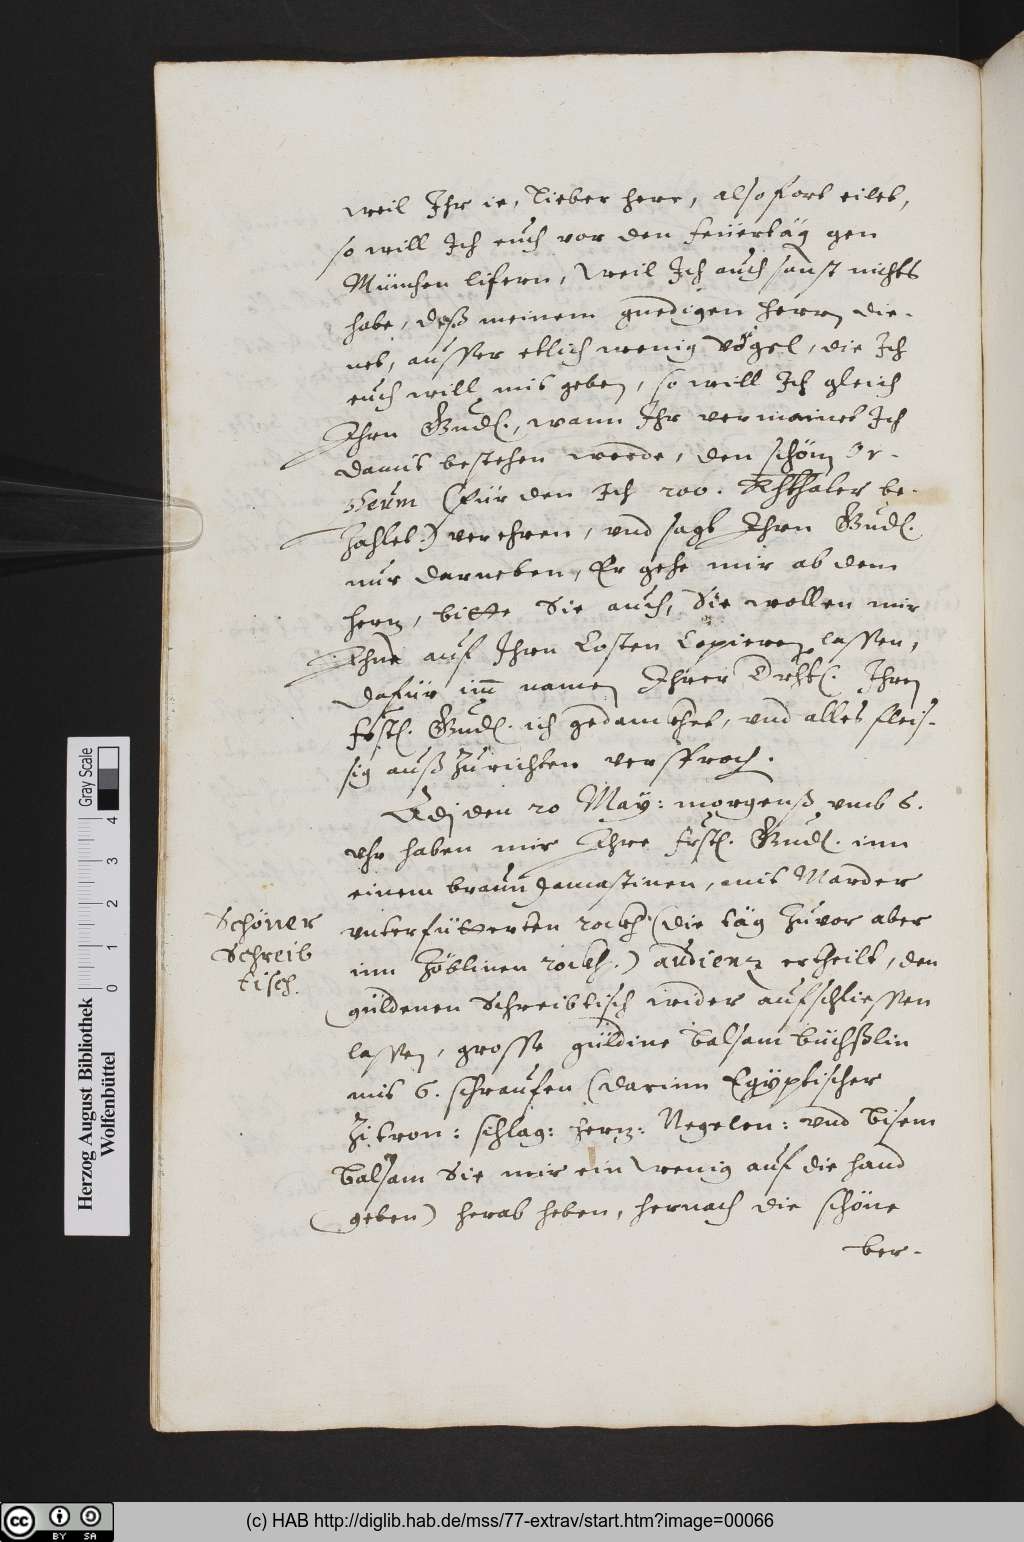 weil Ihr ie, lieber herr, also fort eilet,
so will Ich euch vor den feüertäg gen
München lifern, weil Ich auch sonst nichts
habe, deß meinem gnedigen herrn die-
net, ausser etlich wenig vögel, die Ich
euch will mit geben, so will Ich gleich
Ihrn Gndl., wann Ihr vermainet Ich
damit bestehen werde, den schönen Or-
(für den Ich 200. Rhthaler be-
zahlet.) verehren, vnd sagt Ihrn Gndl.
nur darneben, Er gehe mir ab dem
herz, bitte Sie auch, Sie wollen mir
Ihne auf Ihrn Costen Copieren lassen,
dafür im namen Ihrer Drhlt. Ihrn
frstl. Gndl. ich gedanckhet, vnd alles fleis-
sig auß zurichten versproch.
Adj den 20 May: morgenß vmb 6.
vhr haben mir Ihre frstl. Gndl. inn
einem braun Damastinen, mit Marder
vnterfütterten rockh (die täg zuvor aber
inn Zöblinen rockh.) audienz ertheilt, den
güldenen Schreibtisch wider aufschliessen
lassen, grosse güldine balsam büchßlin
mit 6. schraufen (darinn Egyptischer
Zitron: schlag: herz: Negelen: vnd bisem
balsam Sie mir ein wenig auf die hand
geben) herab heben, hernach die schöne
ber-
Schöner
Schreib
tisch.
Herzog August Bibliothek
Wolfenbüttel
Gray Scale
0 1 2 3 4
(c) HAB http://diglib.hab.de/mss/77-extrav/start.htm?image=00066
cc BY SA